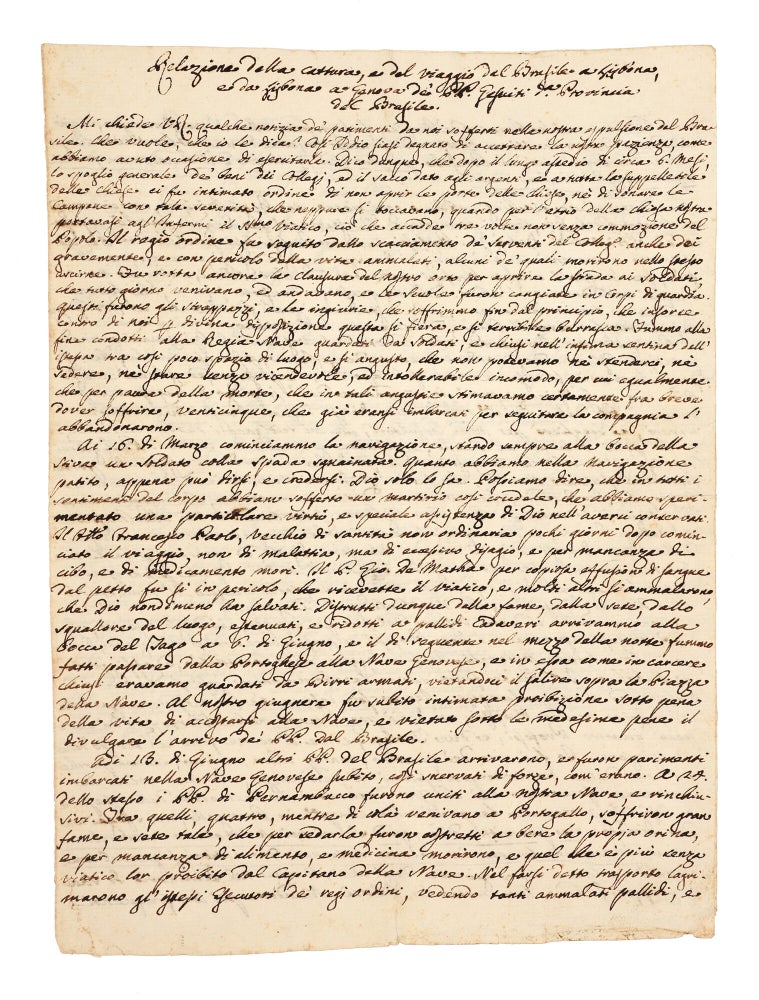 Relazione della cattura, e del viaggio dal Brasile a Lisbona,
e da Lisbona a Genova de' PP. Gesuiti d.a Provincia
del Brasile.
Mi chiede V.R. qualche notizia de' patimenti da noi sofferti nella nostra espulsione dal Bra-
sile. Che vuole, che io le dica? Così Iddio siasi degnato di accettare la nostra pazienza, come
abbiamo avuto occasione di esercitarla. Dico dunque, che dopo il lungo assedio di circa 6. Mesi,
lo spoglio generale de' beni dei Collegj, ed il sacco dato agli argenti, e a tutta la suppellettile
delle chiese ci fu intimato ordine di non aprire le porte delle Chiese, nè di sonare le
Campane con tale severità, che neppure si toccavano, quando per entro della Chiesa nostra
portavasi agl'Infermi il SSmo Viatico, ciò che accadde tre volte non senza commozione del
Popolo. Il regio ordine fu seguito dallo scacciamento de' Serventi del Colleg.o anche dei
gravemente, e con pericolo della vita ammalati, alcuni de' quali morirono nello stesso
uscirne. Fu rotta ancora la clausura del nostro orto per aprire la strada ai Soldati,
che tutto giorno venivano, ed andavano, e le Scuole furon cangiate in Corpi di guardia.
Questi furono gli strapazzi, e le ingiurie, che soffrimmo fin dal principio, che insorse
contro di noi p divina disposizione questa sì fiera, e sì terribile Borrasca. Fummo alla
fine condotti alla Regia Nave guardati da Soldati, e chiusi nell'infima sentina dell'
istessa tra così poco spazio di luogo, e sì angusto, che non potevamo nè stenderci, nè
sedere, nè stare senza vicendevole, ed intollerabile incomodo, per cui egualmente
che per paura della morte, che in tali angustie stimavamo certamente fra breve
dover soffrire, venticinque, che già eransi imbarcati per seguitare la compagnia l'
abbandonarono.
Ai 16. di Marzo cominciammo la navigazione, stando sempre alla bocca della
stiva un Soldato colla spada sguainata. Quanto abbiamo nella navigazione
patito, appena può dirsi, e credersi. Dio solo lo sa. Possiamo dire, che in tutti i
sentimenti del corpo abbiam sofferto un martirio così crudele, che abbiamo speri-
mentato una particolare virtù, e speciale assistenza di Dio nell'averci conservati.
Il Francesco Paolo, vecchio di santità non ordinaria pochi giorni dopo comin-
ciato il viaggio, non di malattia, ma di eccessivo disagio, e per mancanza di
cibo, e di medicamento morì. Il P. Gio. De Matha per copiosa effusion di sangue
dal petto fu sì in pericolo, che ricevette il viatico, e molti altri si ammalarono,
che Dio nondimeno ha salvati. Distrutti dunque dalla fame, dalla sete, dallo
squallore del luogo, estenuati, e ridotti a pallidi cadaveri arrivammo alla
bocca del Tago a 6. di Giugno, e il dì seguente nel mezzo della notte fummo
fatti passare dalla Portoghese alla Nave Genovese, e in essa come in carcere
chiusi eravamo guardati da Birri armati, vietandoci il salire sopra la Piazza
della Nave. Al nostro giugnere fu subito intimata proibizione sotto pena
della vita di accostarsi alla Nave, e vietato sotto la medesima pena il
divulgare l'arrivo de' PP. dal Brasile.
Adì 13. di Giugno altri PP. del Brasile arrivarono, e furon parimenti
imbarcati nella Nave Genovese subito, così snervati di forze, com'erano. A 24.
dello stesso i PP. di Pernambucco furono uniti alla nostra Nave e rinchiu-
sivi. Tra quelli, quattro, mentre di colà venivano a Portogallo, soffriron gran
fame, e sete tale, che per sedarla furon costretti a bere la propia orina,
e per mancanza di alimento, e medicina morirono, e quel che è più senza
viatico lor proibito dal Capitano della Nave. Nel farsi detto trasporto lagri-
marono gl'istessi Esecutori de' regj ordini, vedendo tanti ammalati pallidi, e